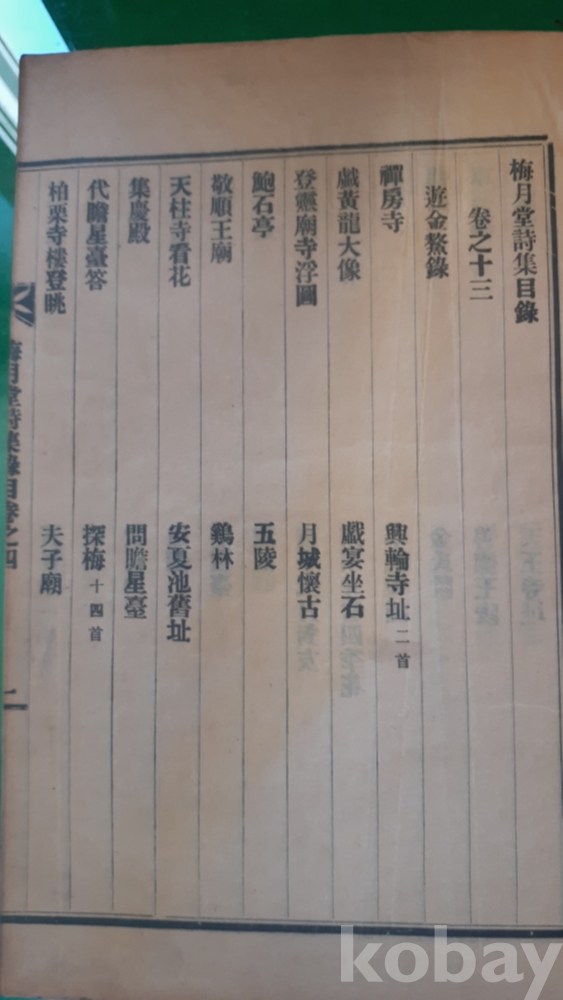 梅月堂詩集目錄
卷之十三
遊金鰲錄
禪房寺
興輪寺址 二首
戲黃龍大像
戲宴坐石
登靈廟寺浮圖
月城懷古
鮑石亭
五陵
敬順王廟
鷄林
天柱寺看花
安夏池舊址
集慶殿
問瞻星臺
代瞻星臺答
探梅 十四首
柏栗寺樓登眺
夫子廟
梅月堂詩集錄目卷之四
二
kobay